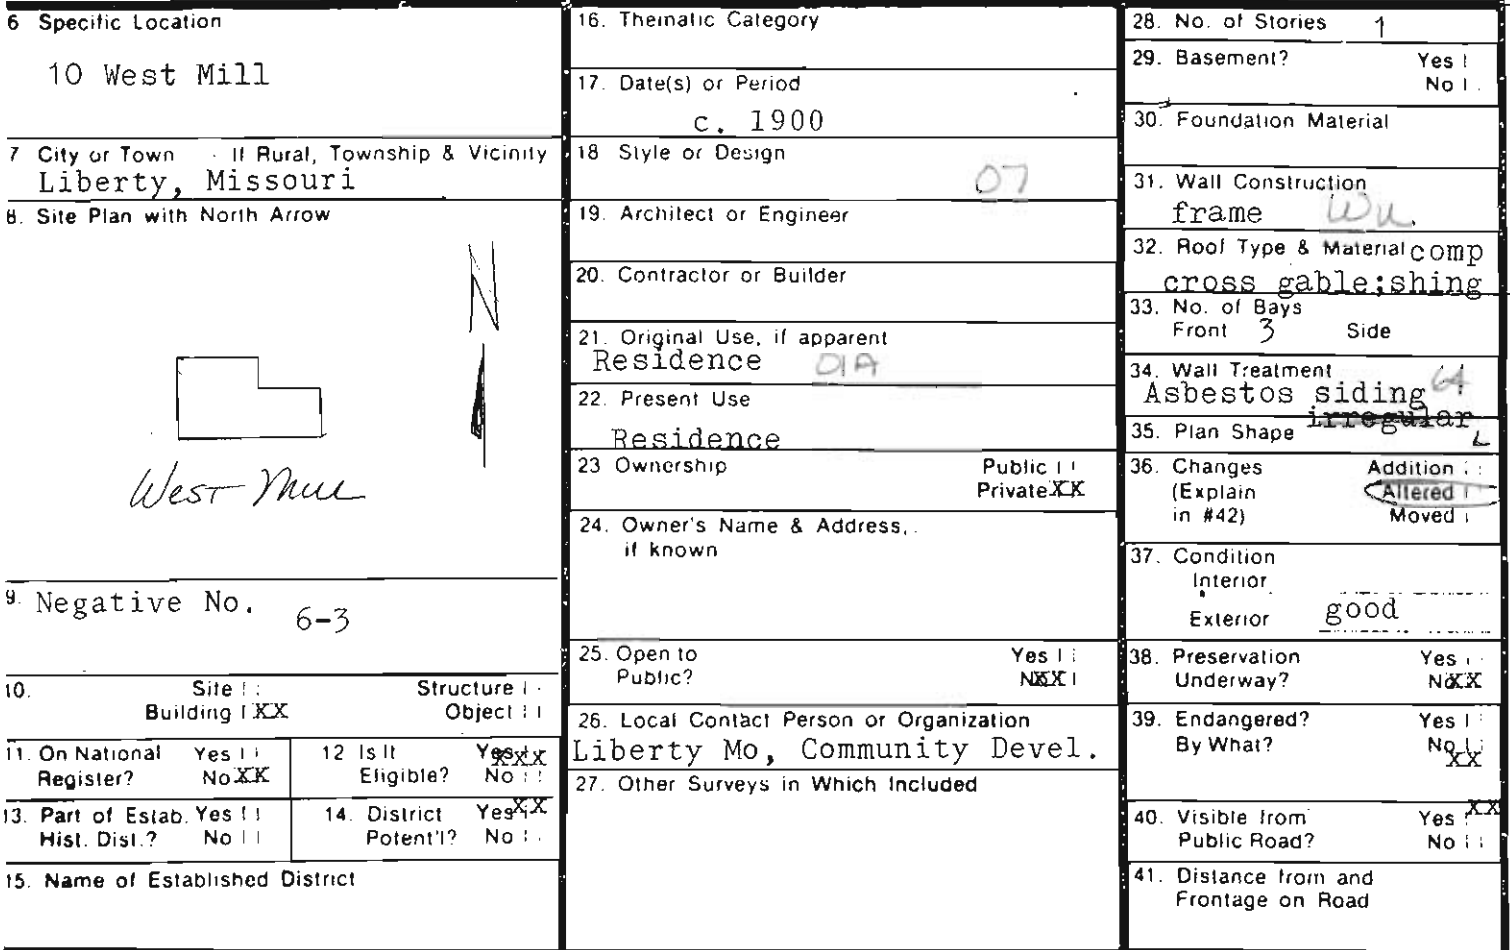 6 Specific Location
10 West Mill
7 City or Town If Rural, Township & Vicinity
Liberty, Missouri
8. Site Plan with North Arrow
N
West Mill
9. Negative No. 6-3
10. Site
Structure
Building XX
Object
11. On National Register? Yes
No XX
12 Is It Eligible? Yes XXX
No
13. Part of Estab. Hist. Dist.? Yes
No
14. District Potent'l? Yes XX
No
15. Name of Established District
16. Thematic Category
17. Date(s) or Period
c. 1900
18 Style or Design
07
19. Architect or Engineer
20. Contractor or Builder
21. Original Use, if apparent
Residence 01A
22. Present Use
Residence
23 Ownership Public
Private XX
24. Owner's Name & Address,
if known
25. Open to Yes
Public? No XX
26. Local Contact Person or Organization
Liberty Mo, Community Devel.
27. Other Surveys in Which Included
28. No. of Stories 1
29. Basement? Yes
No
30. Foundation Material
31. Wall Construction
frame
32. Roof Type & Material comp
cross gable;shing
33. No. of Bays
Front 3 Side
34. Wall Treatment 64
Asbestos siding
irregular
35. Plan Shape L
36. Changes Addition
(Explain Altered
in #42) Moved
37. Condition
Interior
Exterior good
38. Preservation Yes
Underway? No XX
39. Endangered? Yes
By What? No XX
40. Visible from Yes XX
Public Road? No
41. Distance from and
Frontage on Road